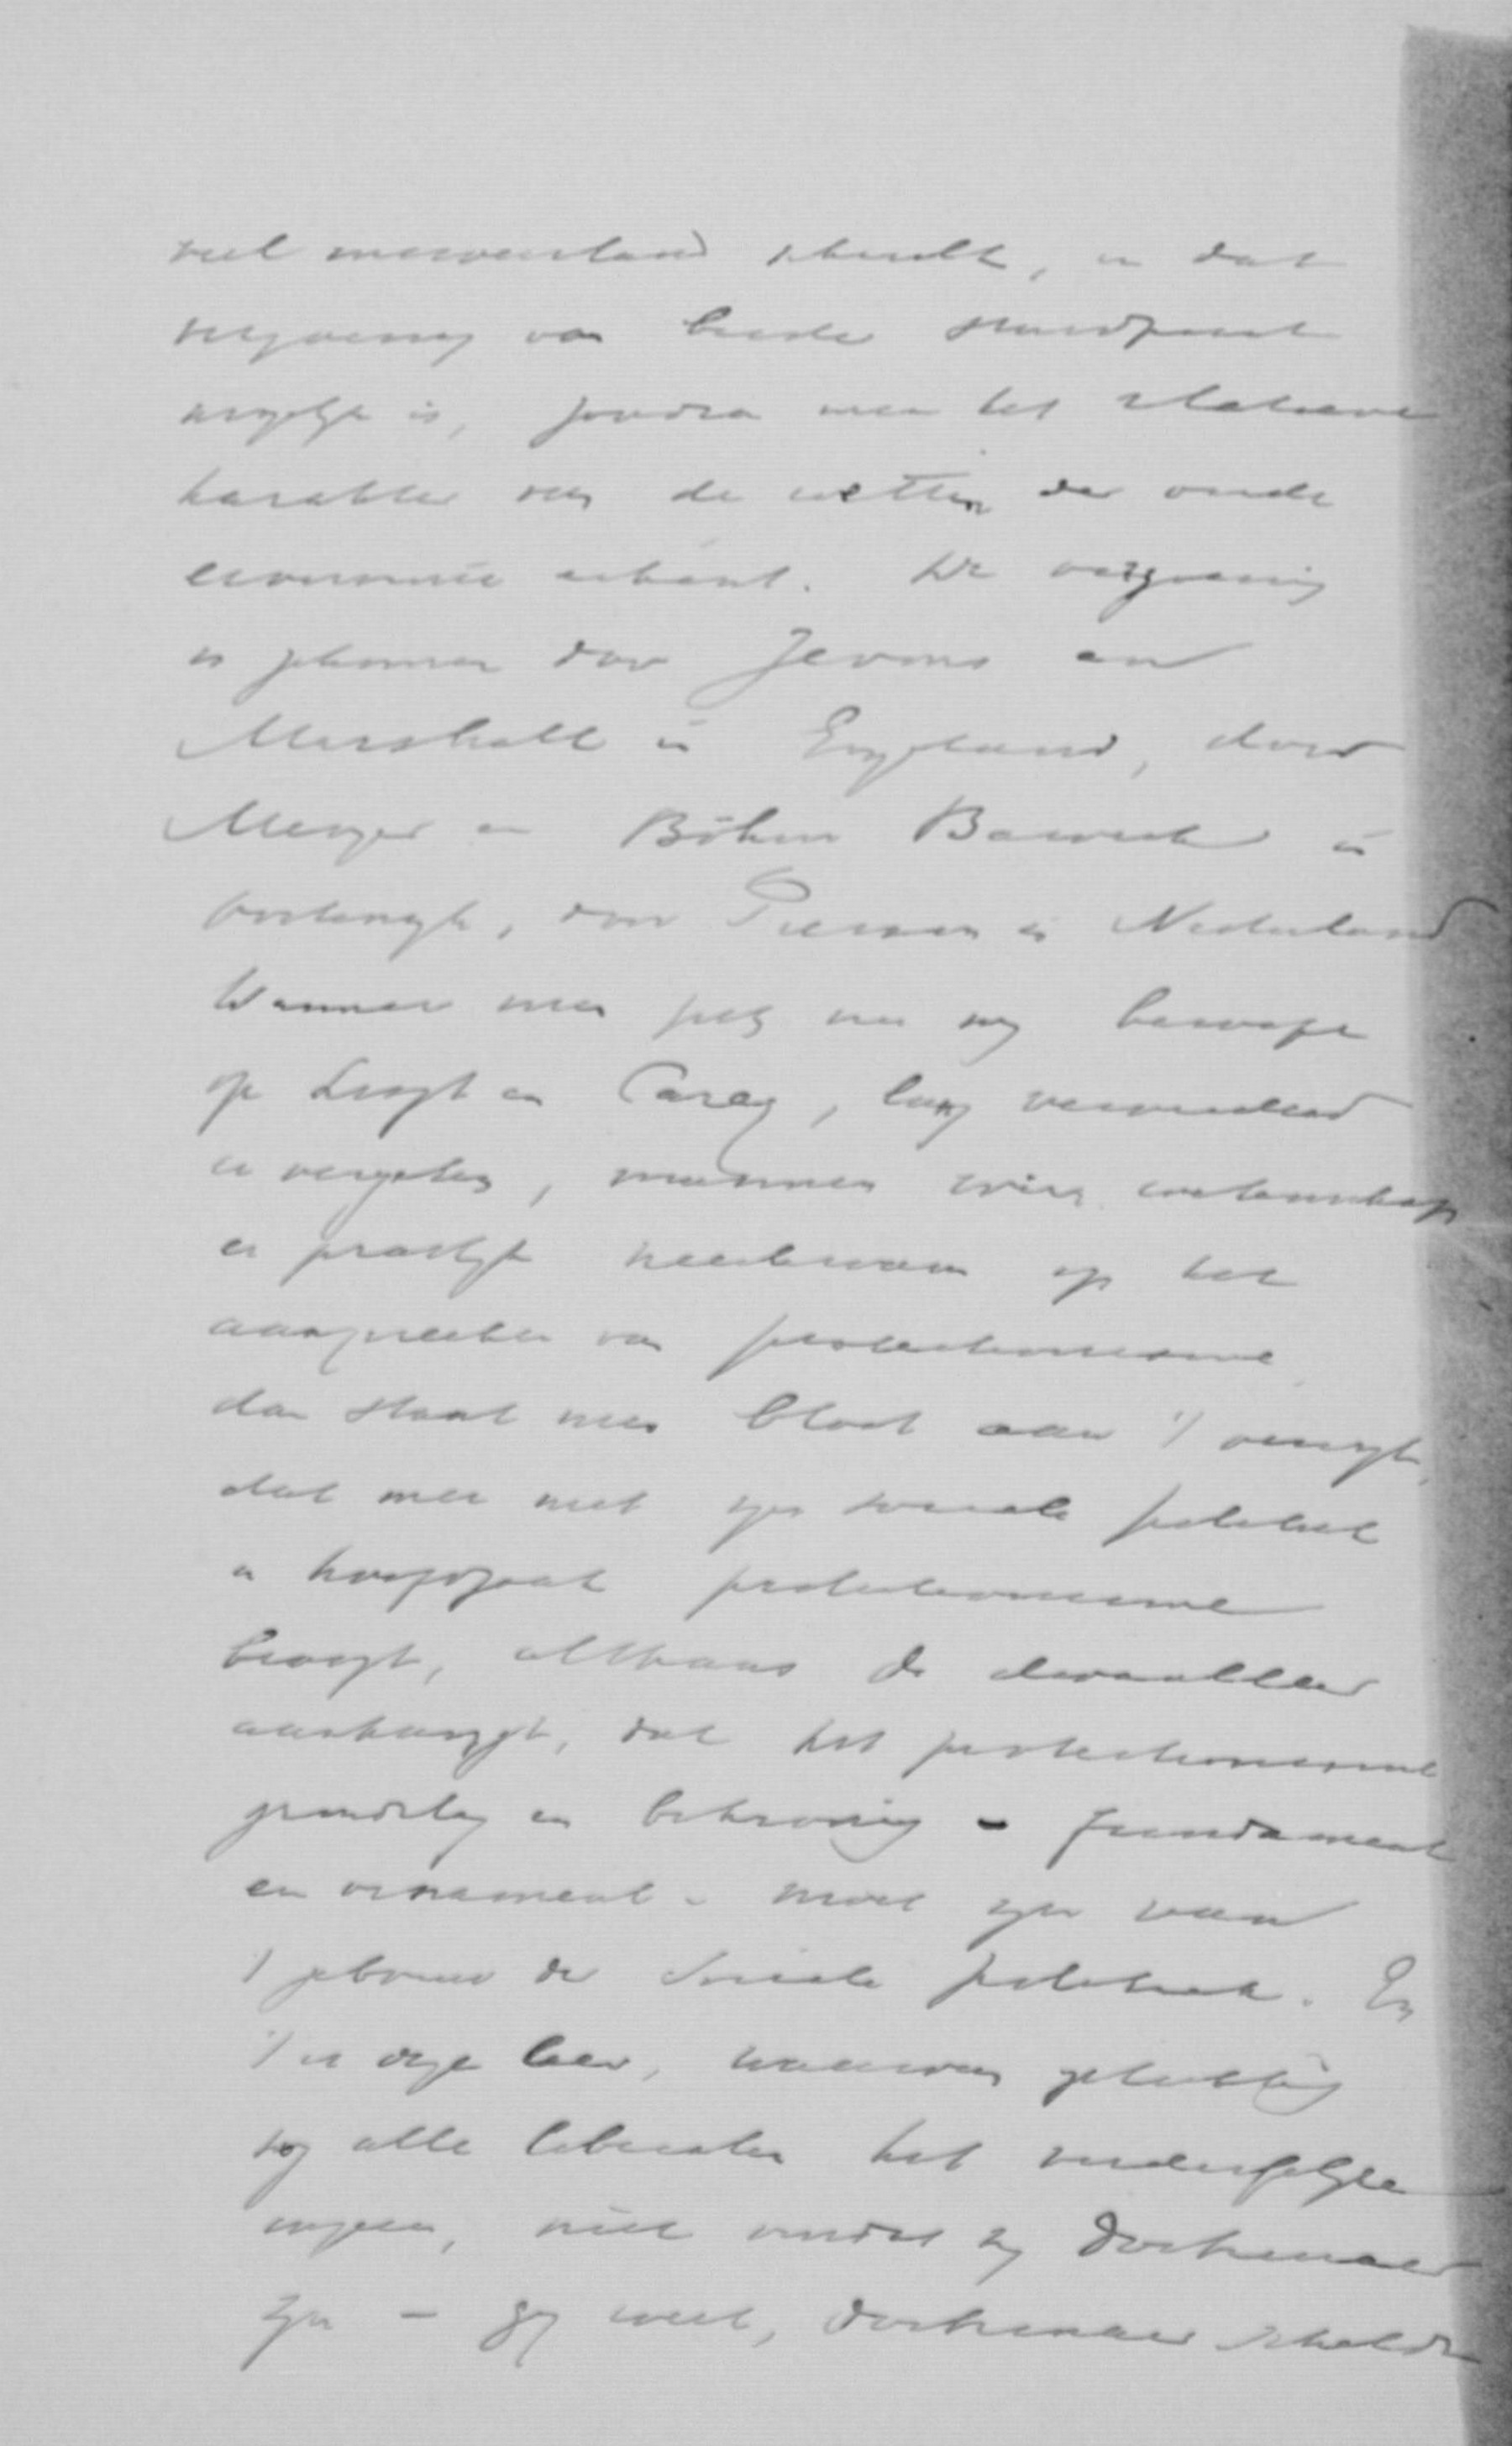 veel misverstand schuilt, en dat
verzoening van beide standpunt
mogelijk is, zoodra men het relatieve
karakter van de wetten der oude
economie erkent. De verzoening
is gekomen door Jevons en
Marshall in England, door
Menger en Böhm Bawerk in
Oostenrijk, door Pierson in Nederland
Wanneer men zich nu nog beroept
op List en Carey, lang verouderd
en vergeten, mannen wier wetenschap
en practijk neerkwam op het
aanprijzen van protectionisme
dan staat men bloot aan 't verwijt,
dat men met zijn sociale politiek
in hoofdzaak protectionisme
beoogt, althans de dwaalleer
aanhangt, dat het protectionisme
grondslag en bekroning - fundament
en ornament - moet zijn van
't gebouw der sociale politiek. En
't is deze leer, waarvan gelukkig
nog alle liberalen het verderfelijke
inzien, niet omdat zij doctrinair
zijn - gij weet, doctrinair scheldt